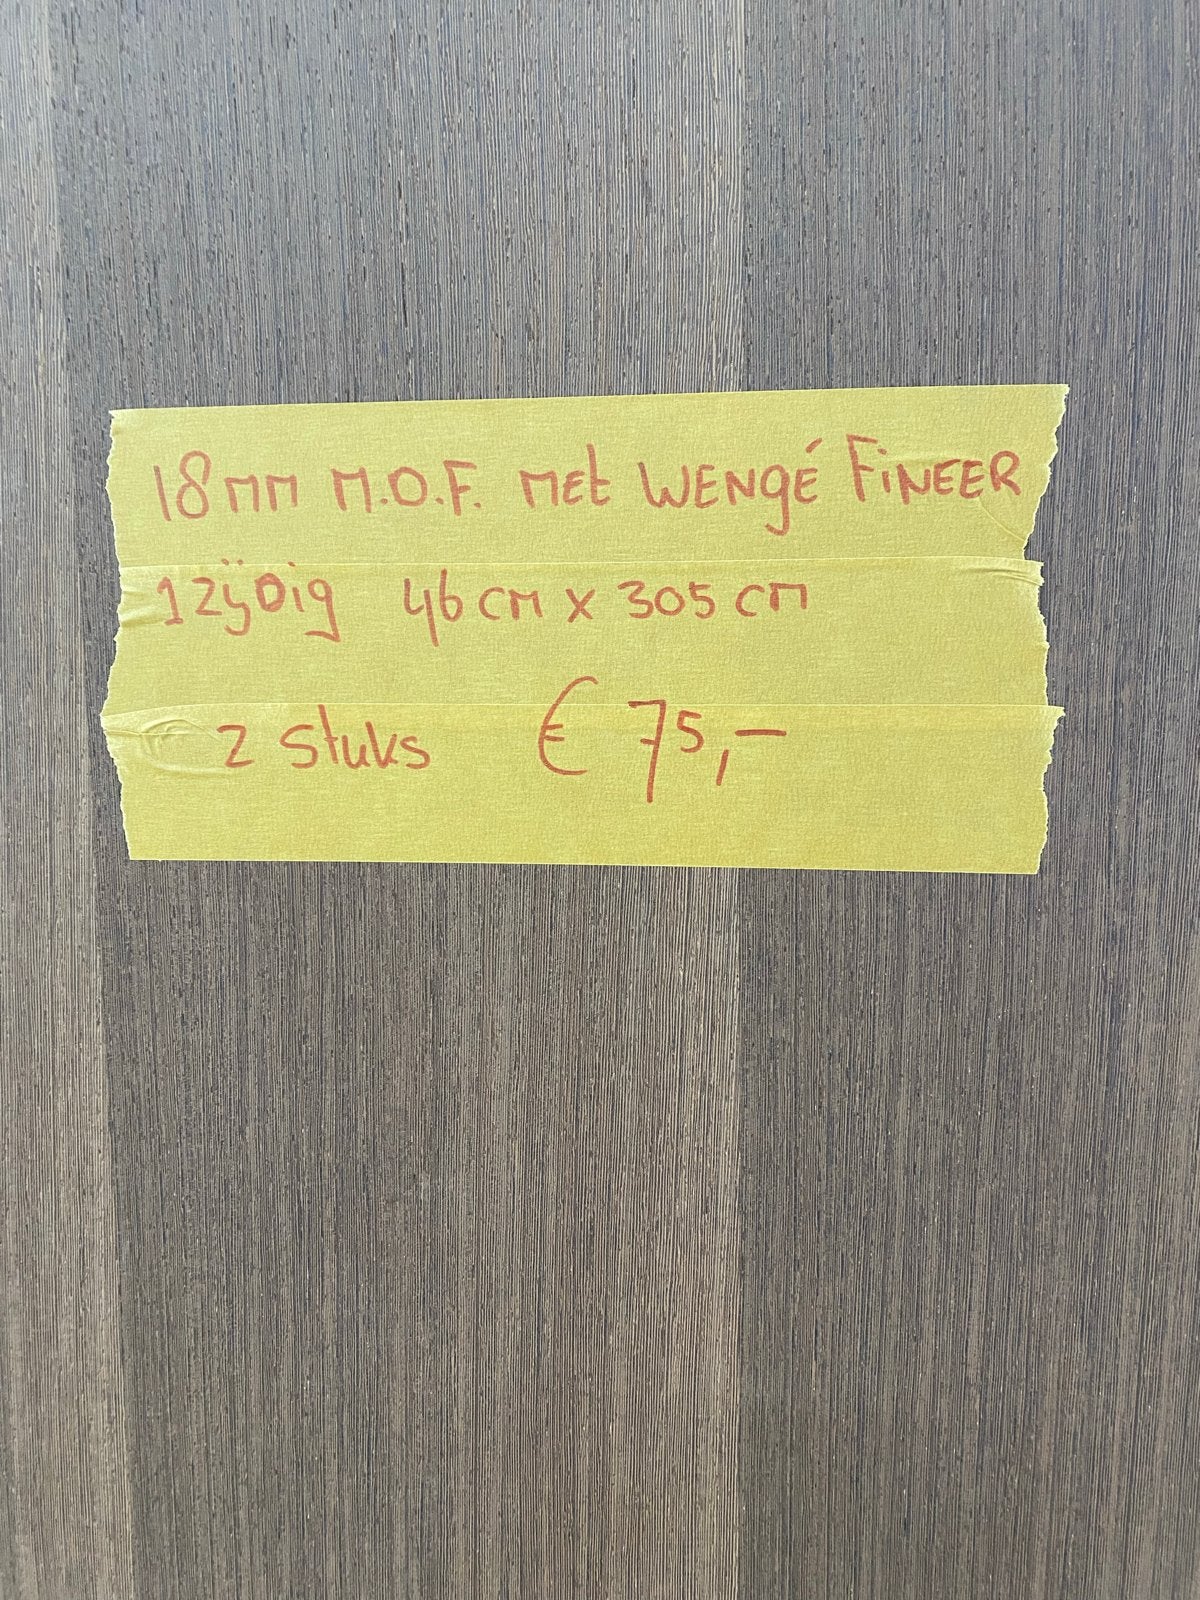 18mm M.D.F. met WENGÉ FiNEER
1 zijDig 46 cm x 305 cm
2 stuks € 75,-